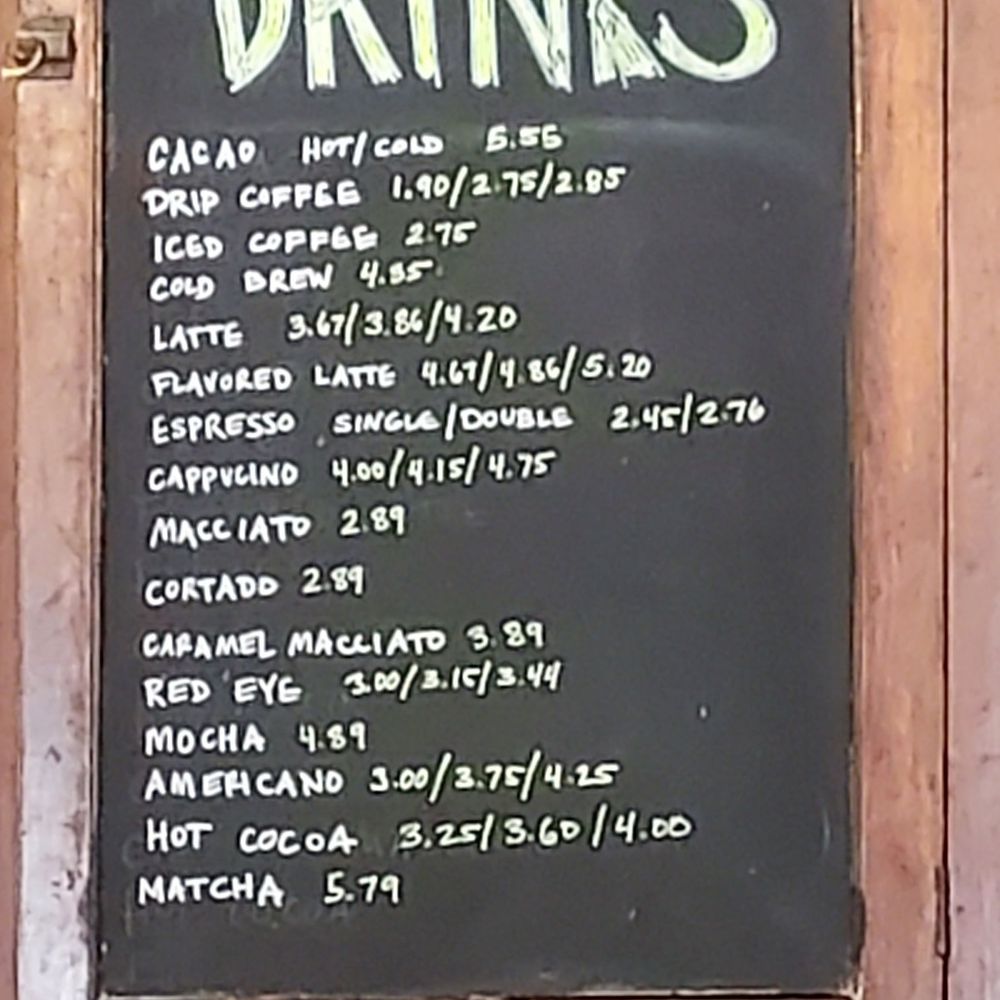 DRINKS
CACAO HOT/COLD 5.55
DRIP COFFEE 1.90/2.75/2.85
ICED COFFEE 2.75
COLD BREW 4.35
LATTE 3.67/3.86/4.20
FLAVORED LATTE 4.67/4.86/5.20
ESPRESSO SINGLE/DOUBLE 2.45/2.76
CAPPUCINO 4.00/4.15/4.75
MACCIATO 2.89
CORTADO 2.89
CARAMEL MACCIATO 3.89
RED EYE 3.00/3.15/3.44
MOCHA 4.89
AMERICANO 3.00/3.75/4.25
HOT COCOA 3.25/3.60/4.00
MATCHA 5.79